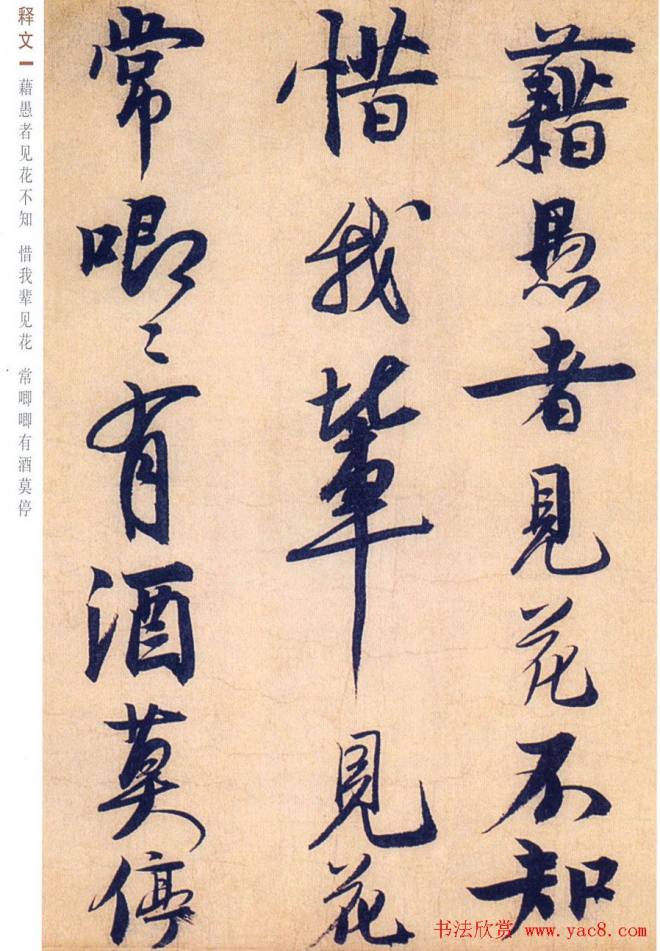 藉愚者見花不知
惜我輩見花
常唧〻有酒莫停
释文
藉愚者见花不知 惜我辈见花 常唧唧有酒莫停
书法欣赏 www.yac8.com